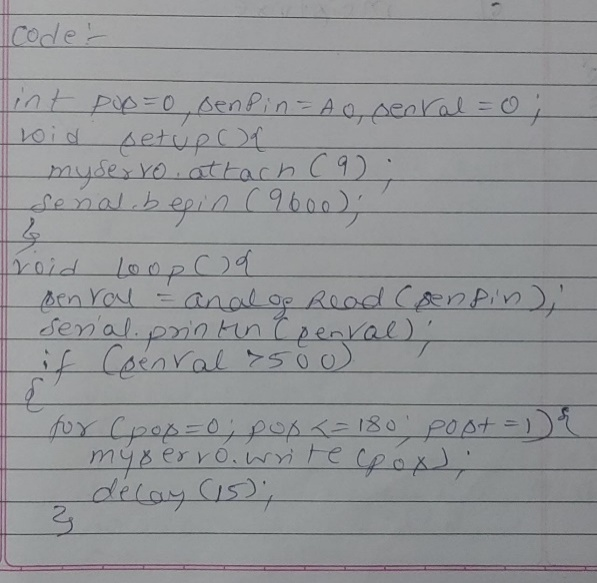 code:-
int pos=0, senPin = A0, senVal = 0;
void setup(){
myservo.attach(9);
serial.begin(9600);
}
void loop(){
senVal = analogRead(senPin);
serial.println(senval);
if (senVal >500)
{
for (pos=0; pos<=180; pos+=1){
myservo.write(pos);
delay(15);
}